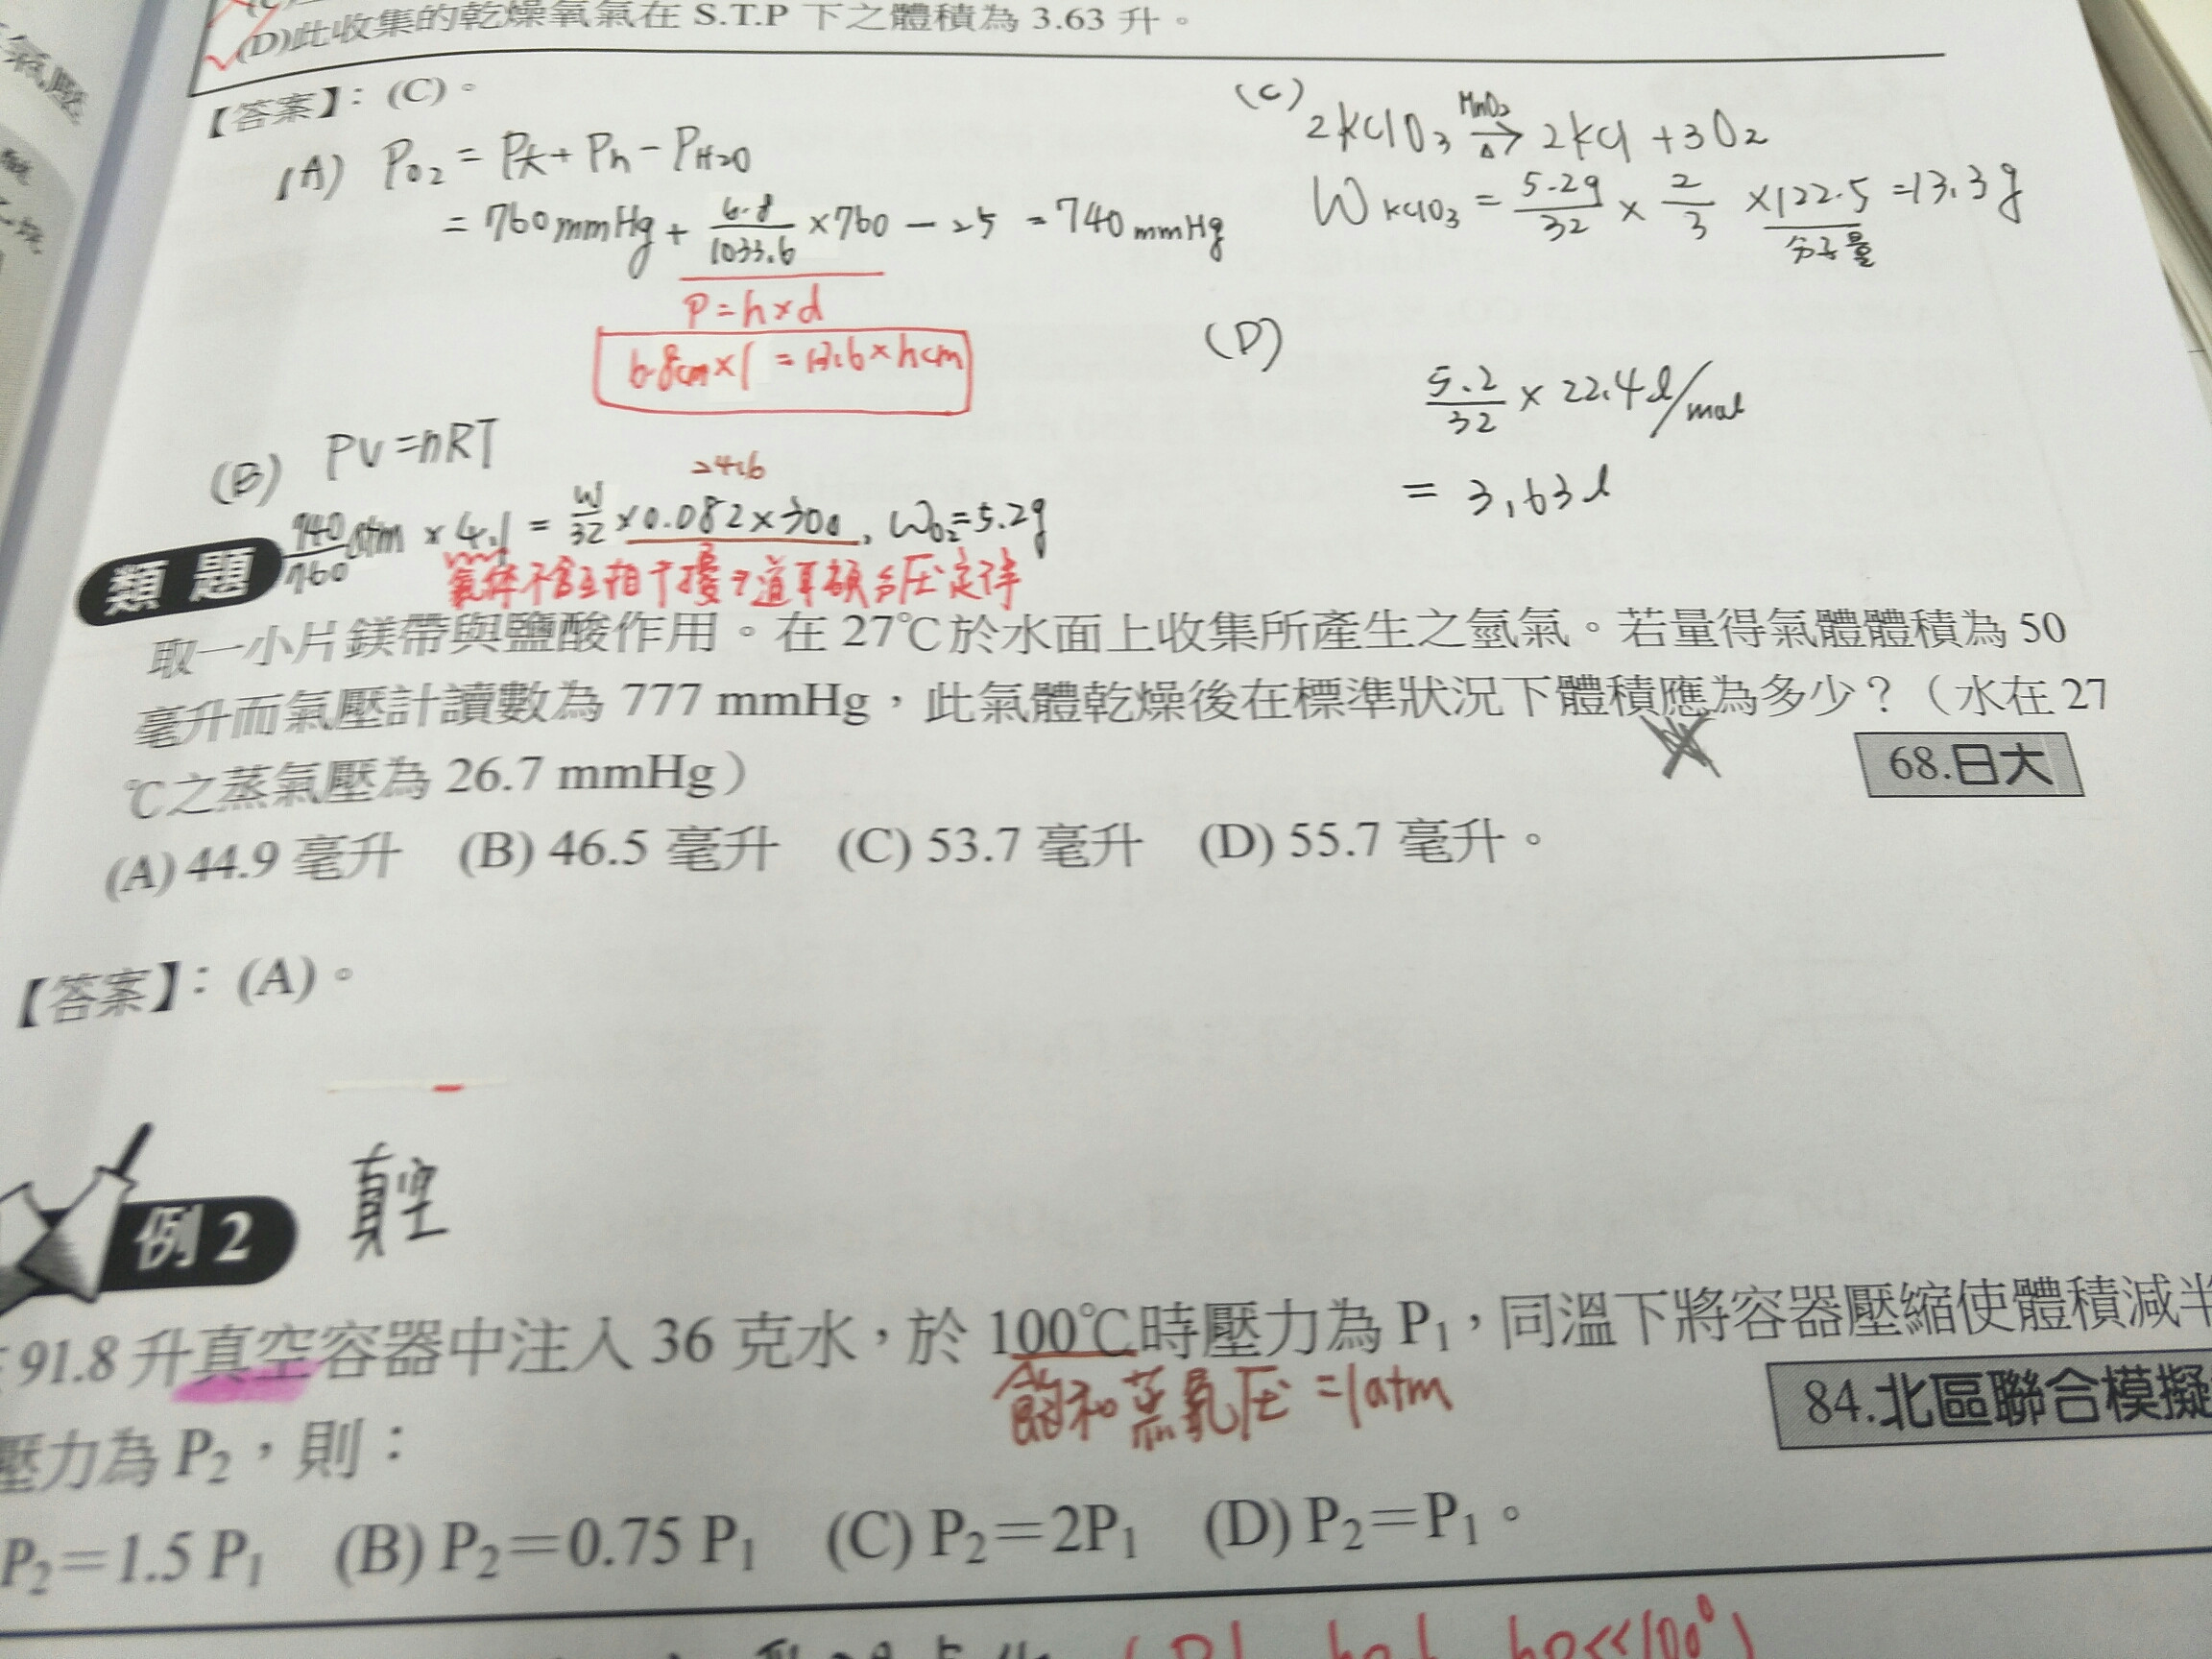 (D)此收集的乾燥氧氣在 S.T.P 下之體積為 3.63 升。
【答案】：(C)。
(A) Po2 = P大 + Ph − PH2O
= 760 mmHg + 6.8/1033.6 ×760 − 25 = 740 mmHg
P = h×d
6.8cm×1 = 13.6×hcm
(B) PV = nRT
24.6
740/760 atm × 4.1 = W/32 ×0.082×300, Wo2=5.2g
氣体不會互相干擾→道耳頓分压定律
(C)
2KClO3 MnO2 →△ 2KCl + 3O2
W KClO3 = 5.2g/32 × 2/3 ×122.5 =13.3g
分子量
(D)
5.2/32 × 22.4 l/mol
= 3.63 l
類題
取一小片鎂帶與鹽酸作用。在 27℃於水面上收集所產生之氫氣。若量得氣體體積為 50
毫升而氣壓計讀數為 777 mmHg，此氣體乾燥後在標準狀況下體積應為多少？（水在 27
℃之蒸氣壓為 26.7 mmHg）
68.日大
(A) 44.9 毫升 (B) 46.5 毫升 (C) 53.7 毫升 (D) 55.7 毫升。
【答案】：(A)。
例 2
真空
91.8 升真空容器中注入 36 克水，於 100℃時壓力為 P1，同溫下將容器壓縮使體積減半
飽和蒸氣压 = 1atm
84.北區聯合模擬
壓力為 P2，則：
P2＝1.5 P1 (B) P2＝0.75 P1 (C) P2＝2P1 (D) P2＝P1。